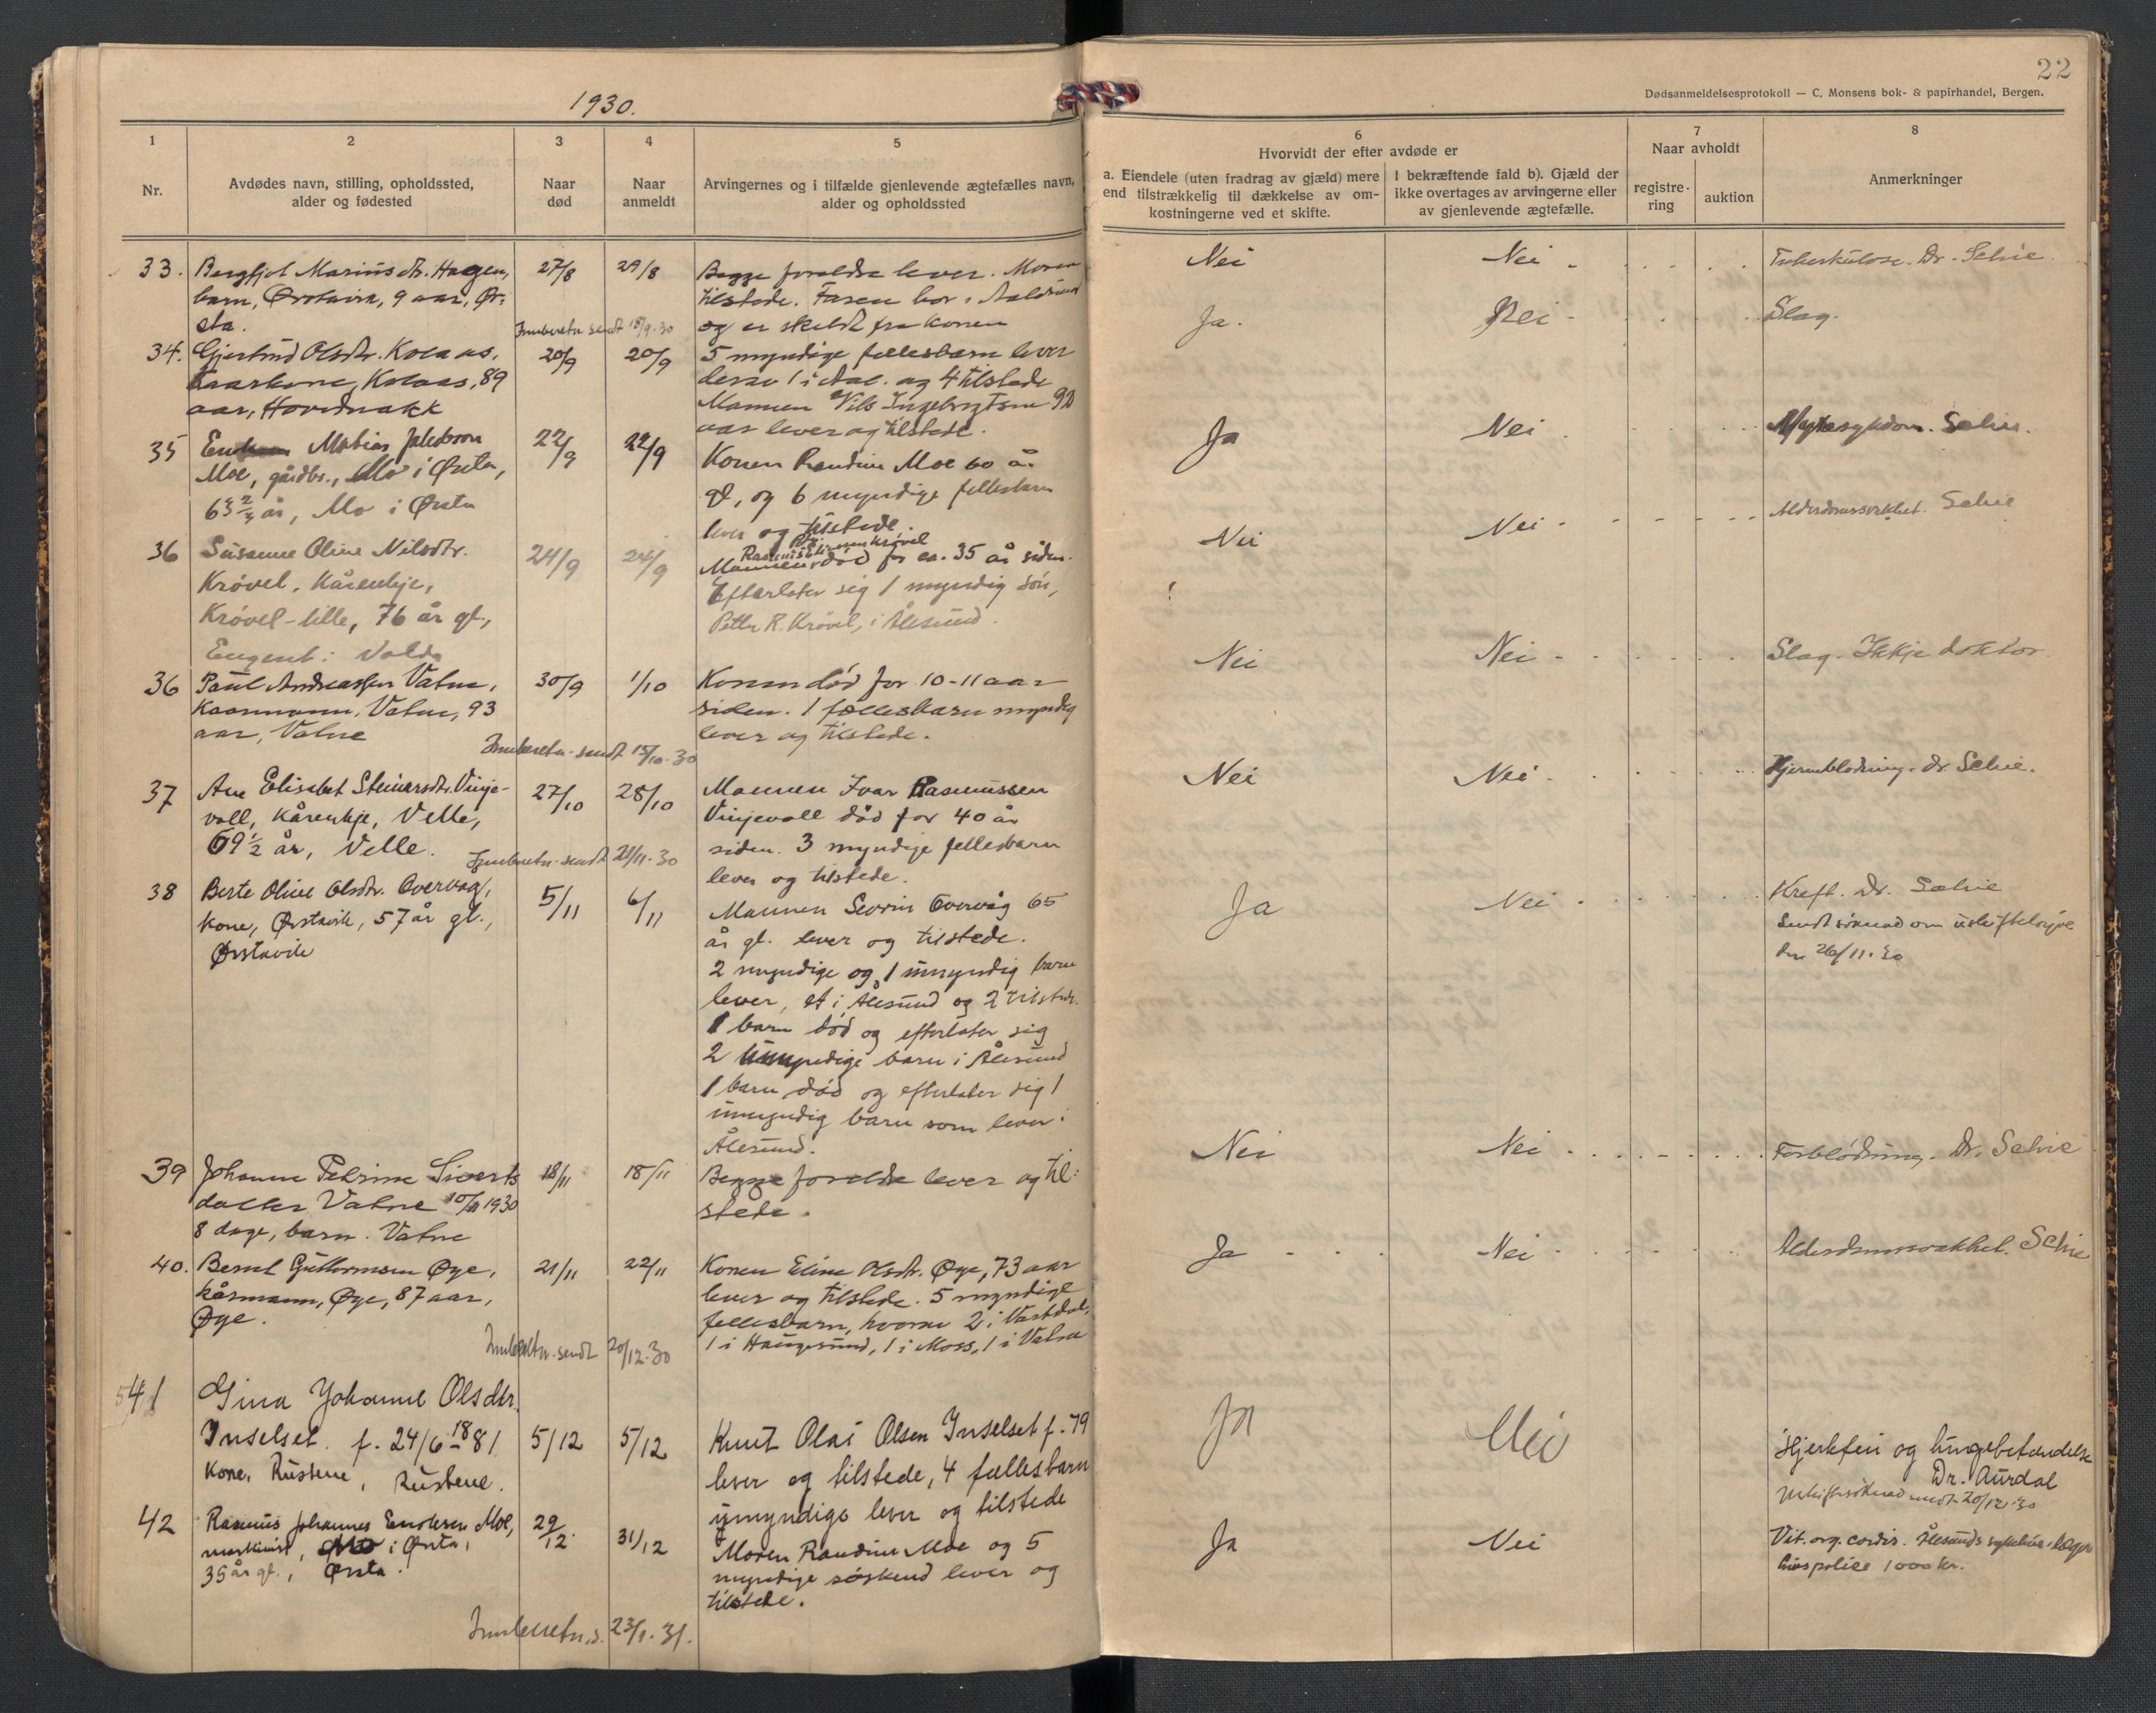 22
Dødsanmeldelsesprotokoll — C. Monsens bok- & papirhandel, Bergen.
1930.
1
2
3
4
5
6
7
8
Nr.
Avdødes navn, stilling, opholdssted,
alder og fødested
Naar
død
Naar
anmeldt
Arvingernes og i tilfælde gjenlevende ægtefælles navn,
alder og opholdssted
Hvorvidt der efter avdøde er
a. Eiendele (uten fradrag av gjæld) mere
end tilstrækkelig til dækkelse av om-
kostningerne ved et skifte.
I bekræftende fald b). Gjæld der
ikke overtages av arvingerne eller
av gjenlevende ægtefælle.
Naar avholdt
registre-
ring
auktion
Anmerkninger
33. Bergfjot Marius dr. Haagen, 27/8 29/8 Begge foreldre lever. Moren
barn, Ørstavik, 9 aar, Ør-
sta.
tilstede. Faren bor i Aalesund
og er skeldt fra konen
Nei Nei - Tuberkulose. Dr. Selvie.
Innberetn sendt 15/9.30
34. Gjertrud Olsdtr. Kolaas, 20/9 20/9 5 myndige fællesbarn lever
kaarkone, Kolaas, 89
aar, Hovdnakk
derav 1 i Aal. og 4 tilstede
Mannen Nils Ingebrigtsen 92
aar lever og tilstede.
Ja. Nei - Slag.
35 Mathias Jakobson 22/9 22/9 Konen Randine Moe 60 år
Moe, gårdbr., Mo i Ørsta,
63 2/4 år, Mo i Ørsta
gl, og 6 myndige fellesbarn
lever og tilstede.
Ja Nei Selvie.
36 Susanne Oline Nilsdtr. 24/9 24/9 Mannen død for ca. 35 år siden.
Krøvel, Kårenkje,
Krøvel-lille, 76 år gl.,
Eugent: Volda
Efterlater sig 1 myndig søn,
Petter R. Krøvel, i Ålesund.
Nei Nei - Alderdomssvekket. Selvie
36 Paul Andreassen Vatne, 30/9 1/10 Konen død for 10-11 aar
Kaarmann, Vatne, 93
aar, Vatne
siden. 1 fællesbarn myndig
lever og tilstede.
Nei Nei - Slag. Ikkje doktor.
Innberetn. sendt 15/10.30
37 Ane Elisabet Steinarsdtr. Vinje- 27/10 28/10 Mannen Ivar Rasmussen
voll, Kårenkje, Velle,
69 1/2 år, Velle.
Vinjevoll død for 40 år
siden. 3 myndige fellesbarn
lever og tilstede.
Nei Nei - Hjerneblødning. Dr. Selvie.
Innberetn. sendt 21/11.30
38 Berte Oline Olsdtr. Overvåg, 5/11 6/11 Mannen Severin Overvåg 65
kone, Ørstavik, 57 år gl.,
Ørstavik
år gl. lever og tilstede.
2 myndige og 1 umyndig barn
lever, et i Ålesund og 2 tilstede.
1 barn død og efterlater sig
2 umyndige barn i Ålesund
1 barn død og efterlater sig 1
umyndig barn som lever i
Ålesund.
Ja Nei - Kreft. Dr. Selvie
Sendt søknad om
den 26/11.30
39 Johanne Petrine Siverts 18/11 18/11 Begge foreldre lever og til-
datter Vatne 10/11 1930
8 dage, barn. Vatne
stede.
Nei Nei Forblødning. Dr. Selvie
40. Bernt Guttormsen Øye, 21/11 22/11 Konen Eline Olsdtr. Øye, 73 aar
kårmann, Øye, 87 aar,
Øye.
lever og tilstede. 5 myndige
fellesbarn, hvorav 2 i Vartdal,
1 i Haugesund, 1 i Moss, 1 i Vatne
Ja - Nei - Selvie
Innberetn. sendt 20/12.30
41 Gina Johanne Olsdtr.
Inselset. f. 24/6 - 1881 5/12 5/12 Knut Olai Olsen Inselset f. 79
Kone, Rustene, Rustene.
lever og tilstede, 4 fællesbarn
umyndige lever og tilstede
Ja Nei Hjertefeil og lungebetændelse
Dr. Aurdal
sendt 20/12.30
42 Rasmus Johannes Eriksen Moe, 29/12. 31/12 Moren Randine Moe og 5
maskinist, Mo i Ørsta,
35 år gl., Ørsta.
myndige søskend lever og
tilstede.
Ja Nei Vit. org. cordis. Ålesunds sykehus. læge
livspolice 1000 kr.
Innberetn. s. 23/1.31.